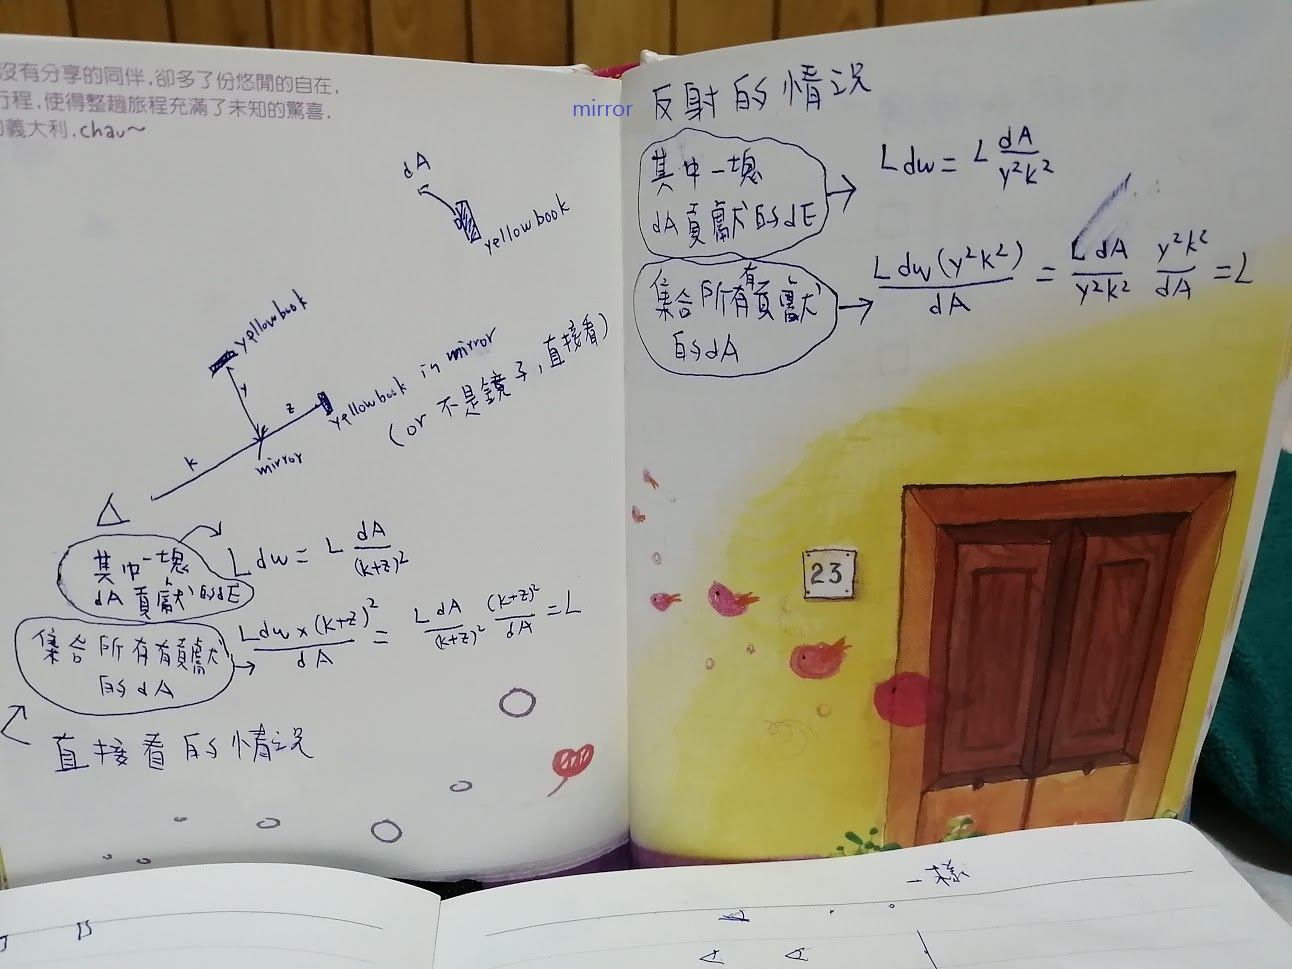 沒有分享的同伴,卻多了份悠閒的自在,
行程,使得整趟旅程充滿了未知的驚喜.
義大利.chau~
dA
yellowbook
yellowbook
y
z
k
mirror
yellowbook in mirror
(or 不是鏡子,直接看)
其中一塊
dA貢獻的dE
Ldw = L dA/(k+z)²
集合所有有貢獻
的dA
Ldw×(k+z)²/dA = LdA/(k+z)² (k+z)²/dA = L
直接看的情況
mirror
反射的情況
其中一塊
dA貢獻的dE
Ldw = L dA/y²k²
集合所有有貢獻
的dA
Ldw(y²k²)/dA = LdA/y²k² y²k²/dA = L
23
一樣